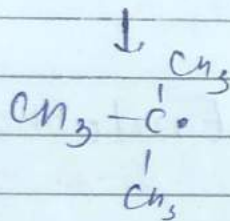 CH₃
CH₃ – C •
CH₃